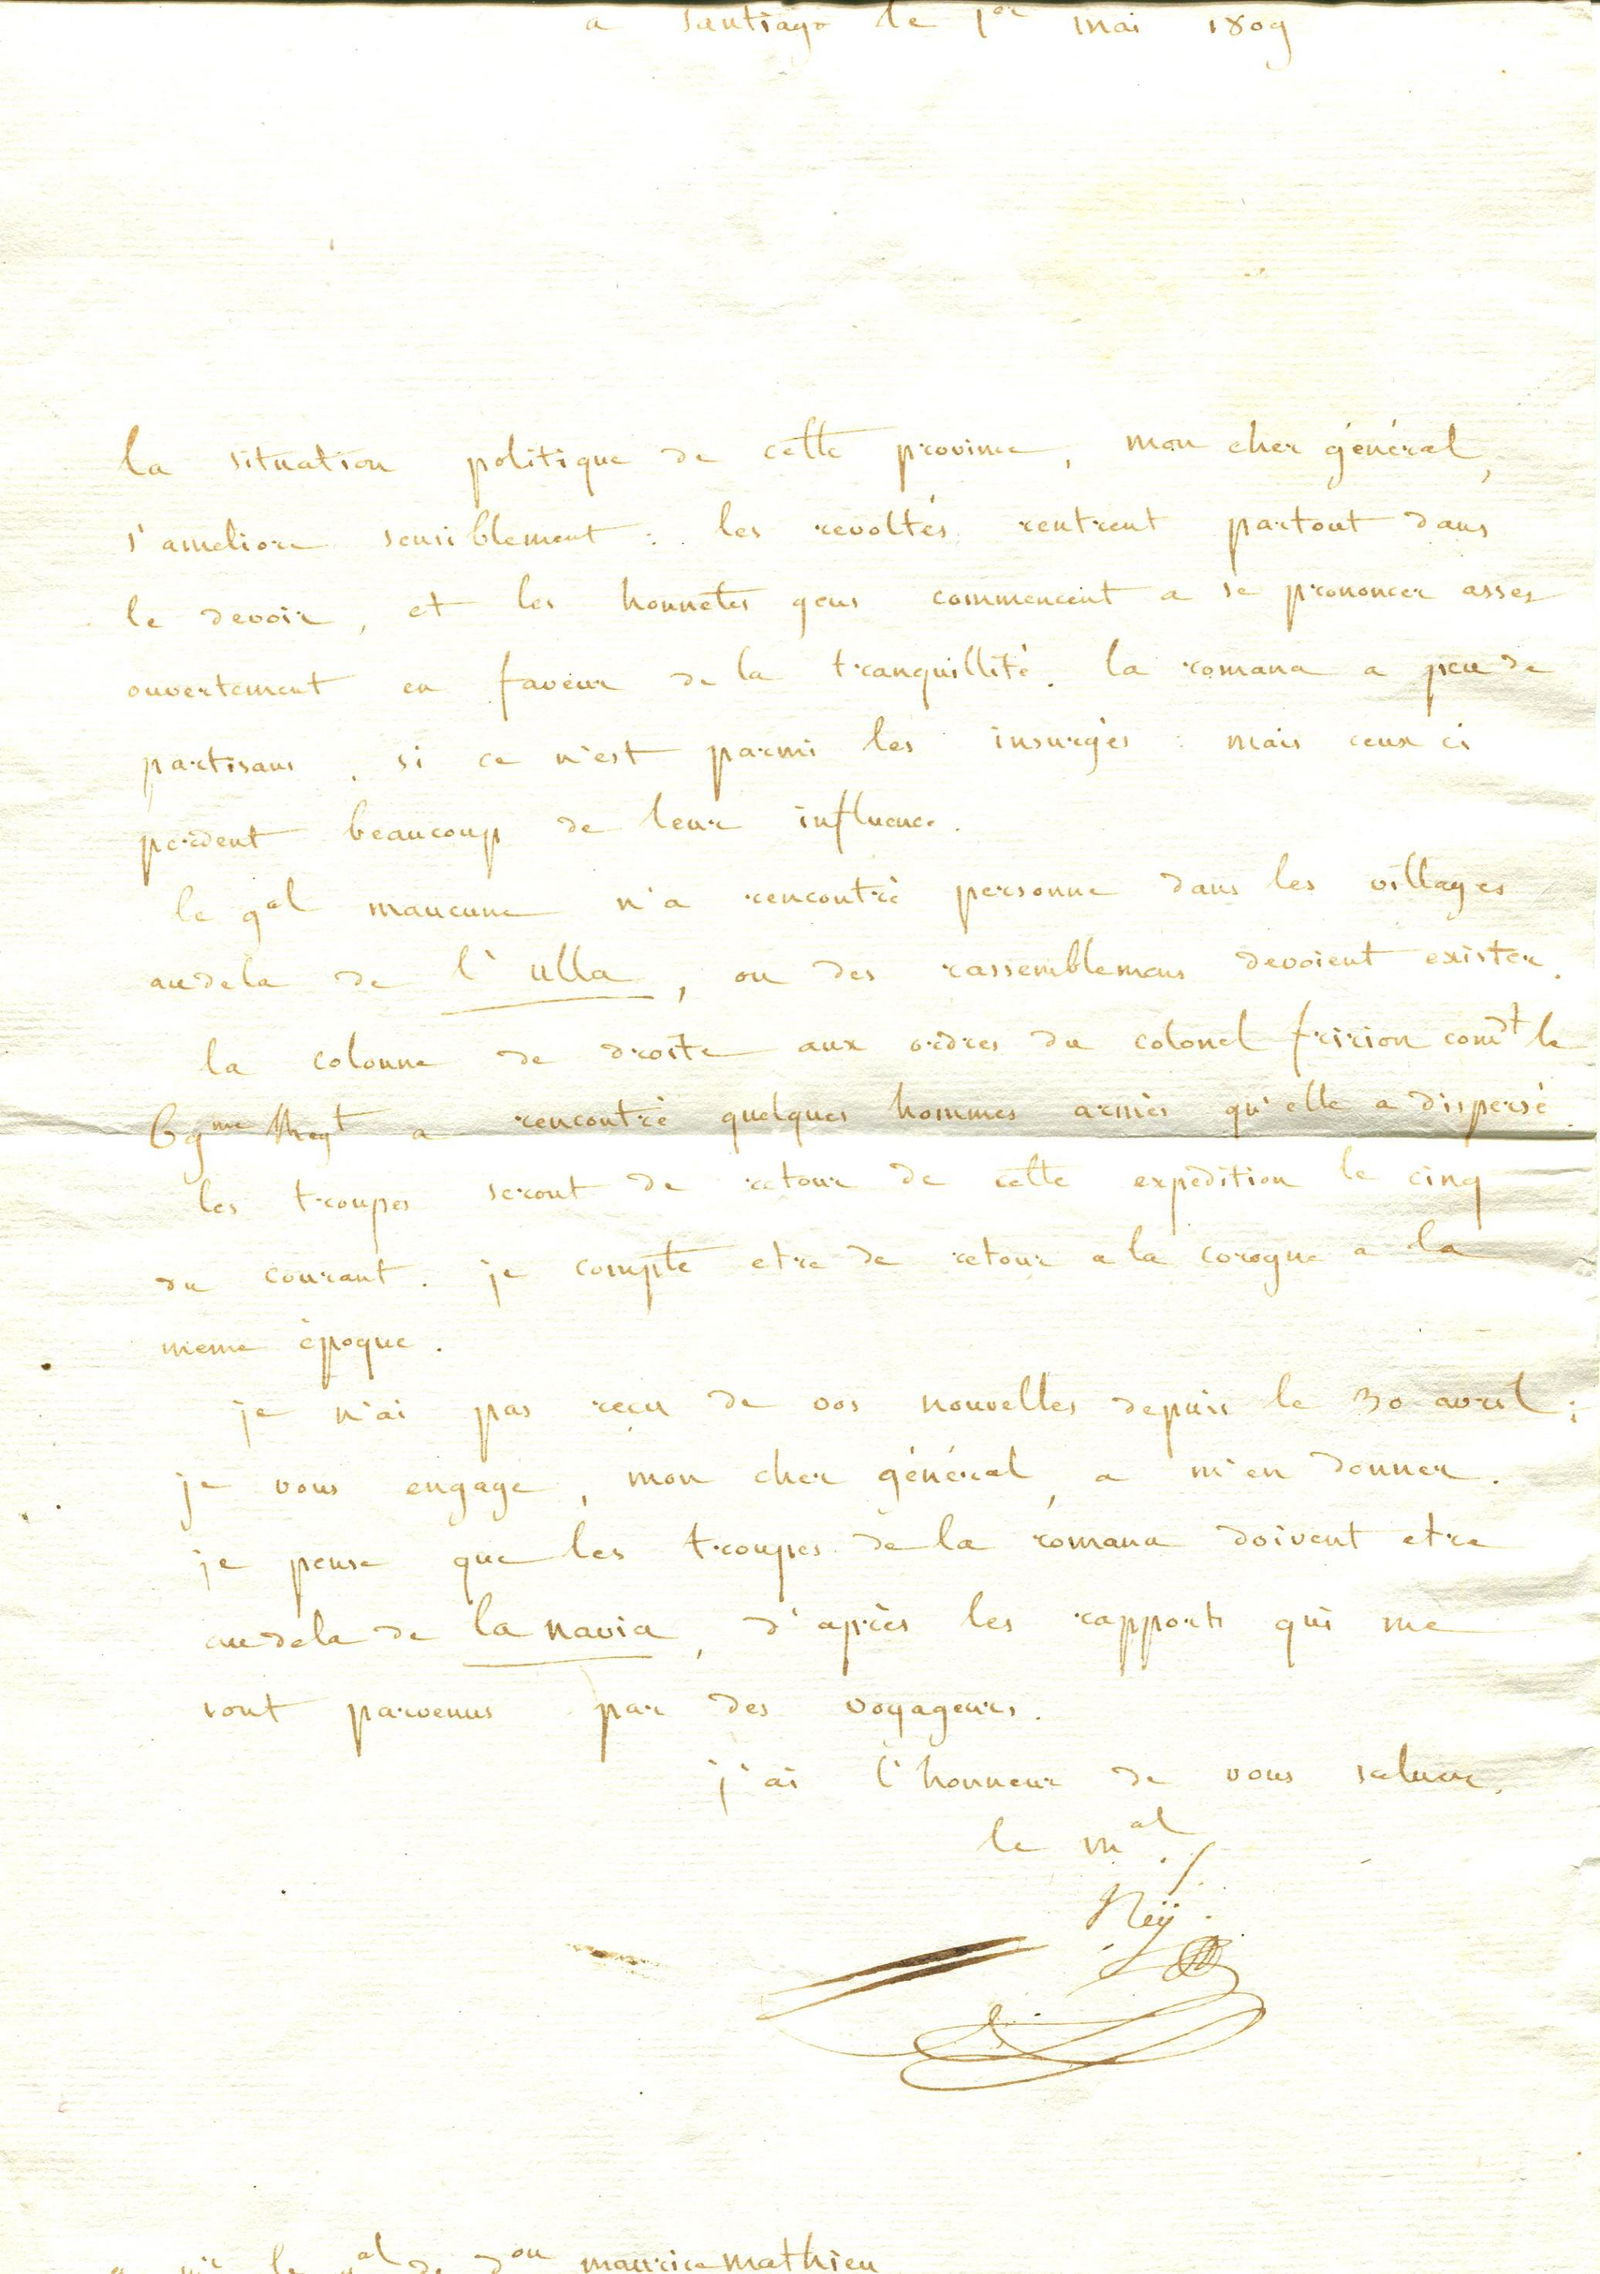 a santiago le 1er mai 1809
la situation politique de cette province, mon cher général,
s'ameliore sensiblement : les revoltés rentrent partout dans
le devoir, et les honnetes gens commencent a se prononcer assez
ouvertement en faveur de la tranquillité. la romana a peu de
partisans, si ce n'est parmi les insurgés : mais ceux ci
perdent beaucoup de leur influence.
le gal maucune n'a rencontré personne dans les villages
audela de l'ulla, ou des rassemblemens devoient exister.
la colonne de droite aux ordres du colonel fririon comdt le
69me Regt a rencontré quelques hommes armés qu'elle a dispersé.
les troupes seront de retour de cette expedition le cinq
du courant. je compte etre de retour a la corogne a la
meme époque.
je n'ai pas reçu de vos nouvelles depuis le 30 avril ;
je vous engage, mon cher général, a m'en donner.
je pense que les troupes de la romana doivent etre
audela de la navia, d'après les rapports qui me
sont parvenus par des voyageurs.
j'ai l'honneur de vous saluer.
le mal
Ney
a mr le gal de don maurice mathieu